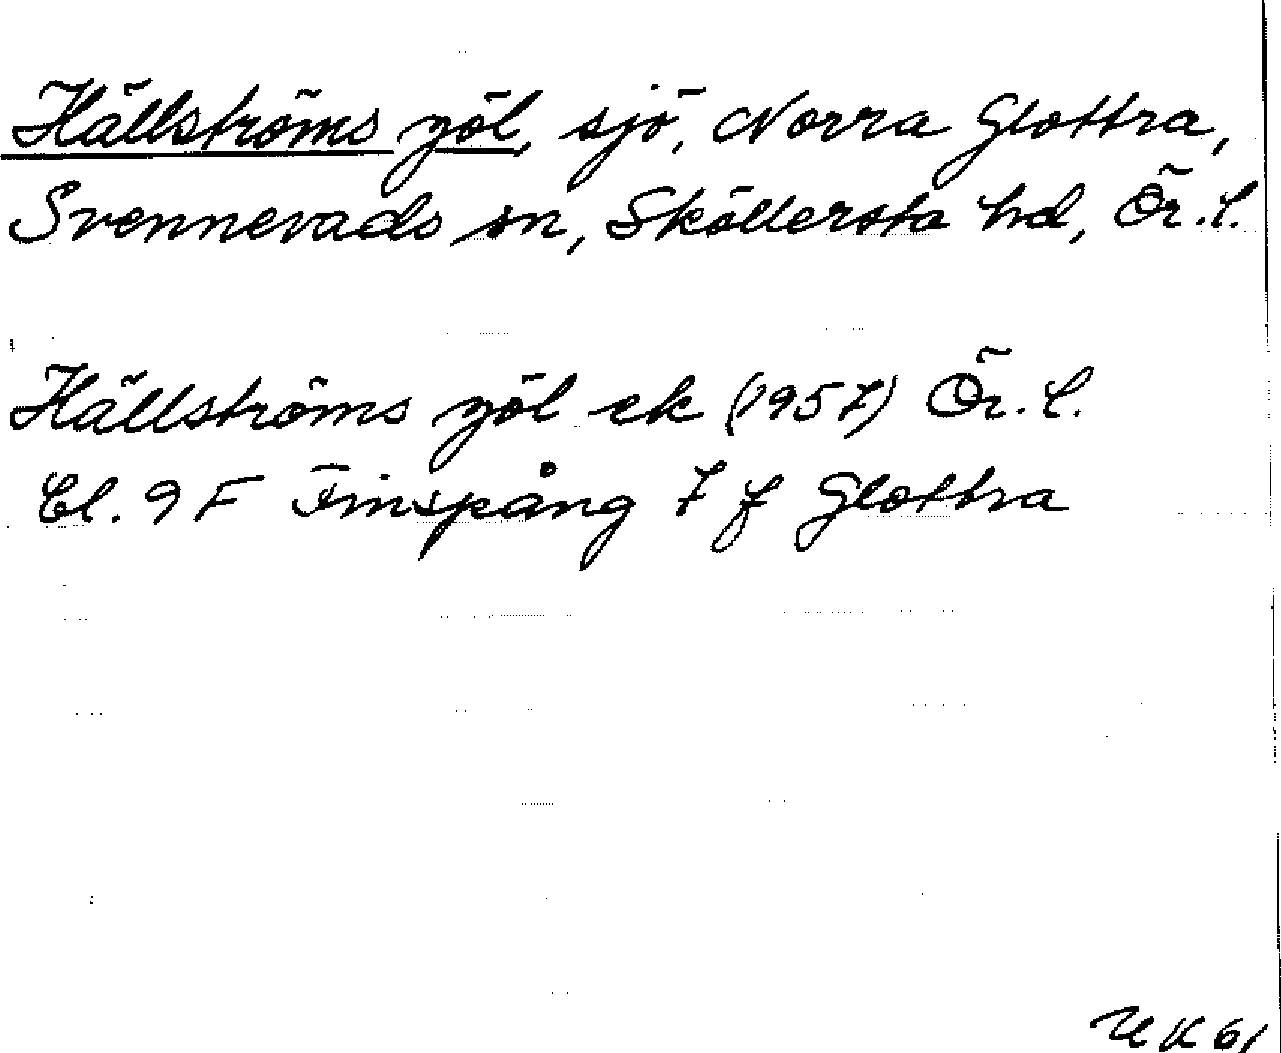 Hällströms göl, sjö, Norra Glottra,
Svennevads sn, Sköllersta hd, Ör. l.
Hällströms göl ek (1957) Ör. l.
Bl. 9 F Finspång 7 f Glottra
UK 61